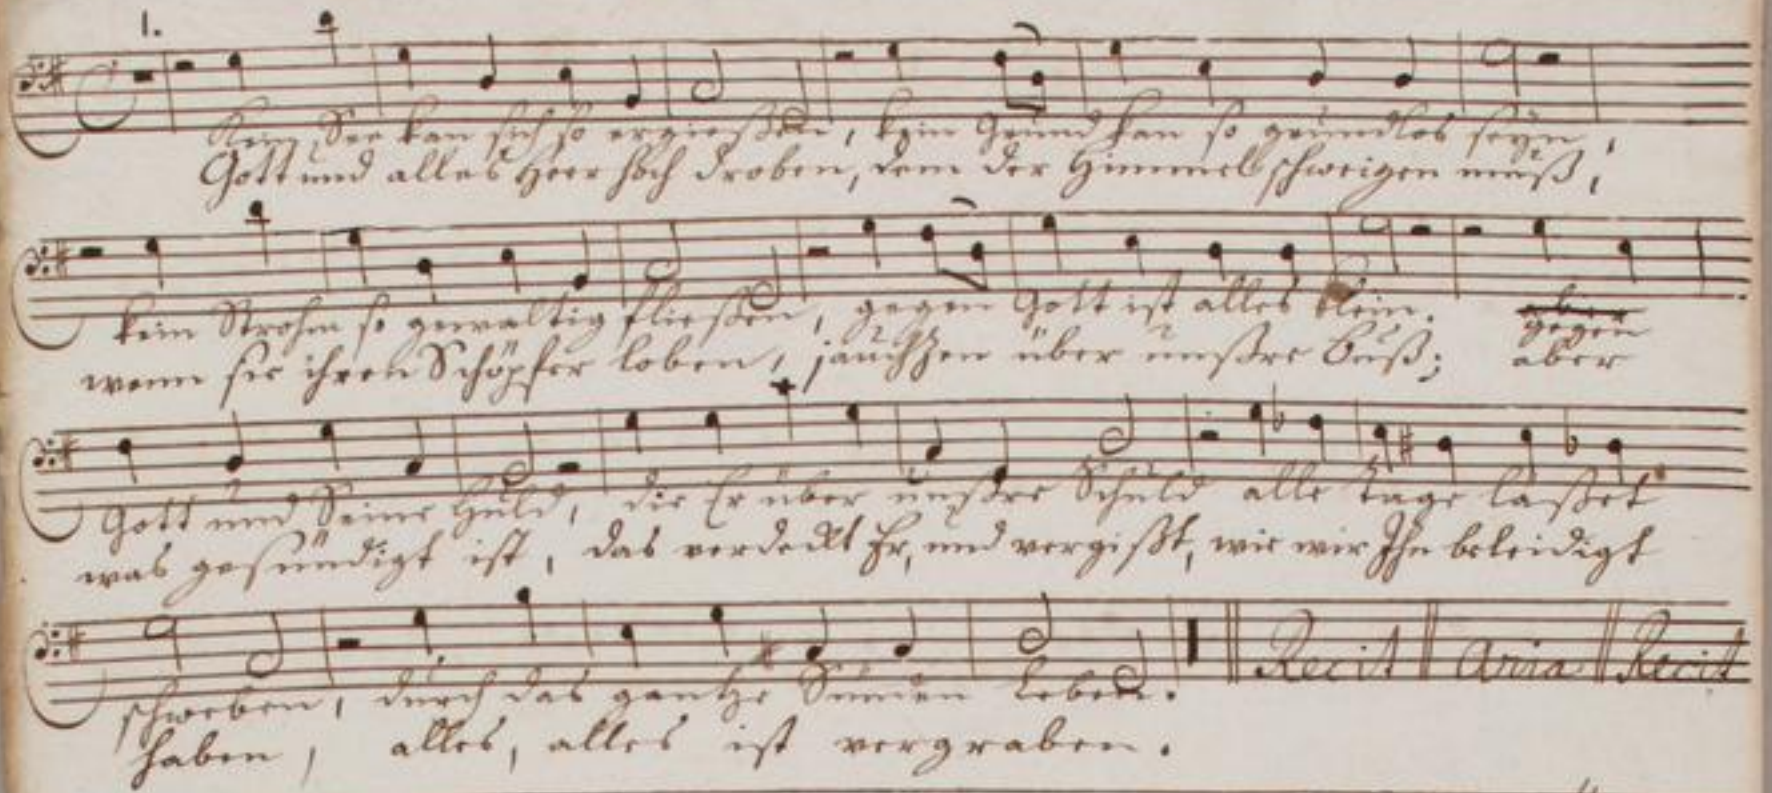 1.
Kein See kan sich so ergießen, kein Grund kan so grundlos seyn,
Gott und alles Heer hoch droben, dem der Himmel schweigen muß,
kein Strohm so gewaltig fließen, gegen Gott ist alles klein. gegen
wenn sie ihren Schöpfer loben, jauchzen über unßre Buß; aber
Gott und Seine Huld, die Er über unßre Schuld alle Tage laßet
was gesündigt ist, das verdeckt Er, und vergißt, wie wir Ihn beleidigt
schweben, durch das gantze Sünden Leben.
haben, alles, alles ist vergraben.
Recit Aria Recit